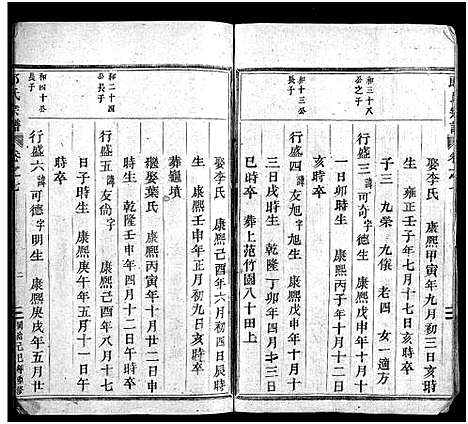 娶李氏 康熙甲寅年九月初三日亥時
生 雍正壬子年七月十七日亥時卒
子三 九榮 九儀 老四 女一適方
和三十八
公之子
行盛三諱可奇字 康熙甲寅年十月十
一日卯時生 康熙丙子年十月十二日
亥時卒
和十三公
長子
行盛四諱友旭字旭生 康熙戊申年十月
日戌時生 乾隆丁卯年四月 三日
巳時卒 葬上范竹園八十田上
娶李氏 康熙己酉年六月初四日辰時
生 康熙壬申年正月初九日亥時卒
葬龜墳
繼娶葉氏 康熙丙寅年十月廿二日申
時生 乾隆壬申年四月十二日寅時卒
和二十四
公長子
行盛五諱友尚字 康熙己酉年八月十七
日子時生 康熙庚午年五月十一日午
時卒
和四十公
長子
行盛六諱可德字明生 康熙庚戌年五月廿
氏宗譜 卷之七
二